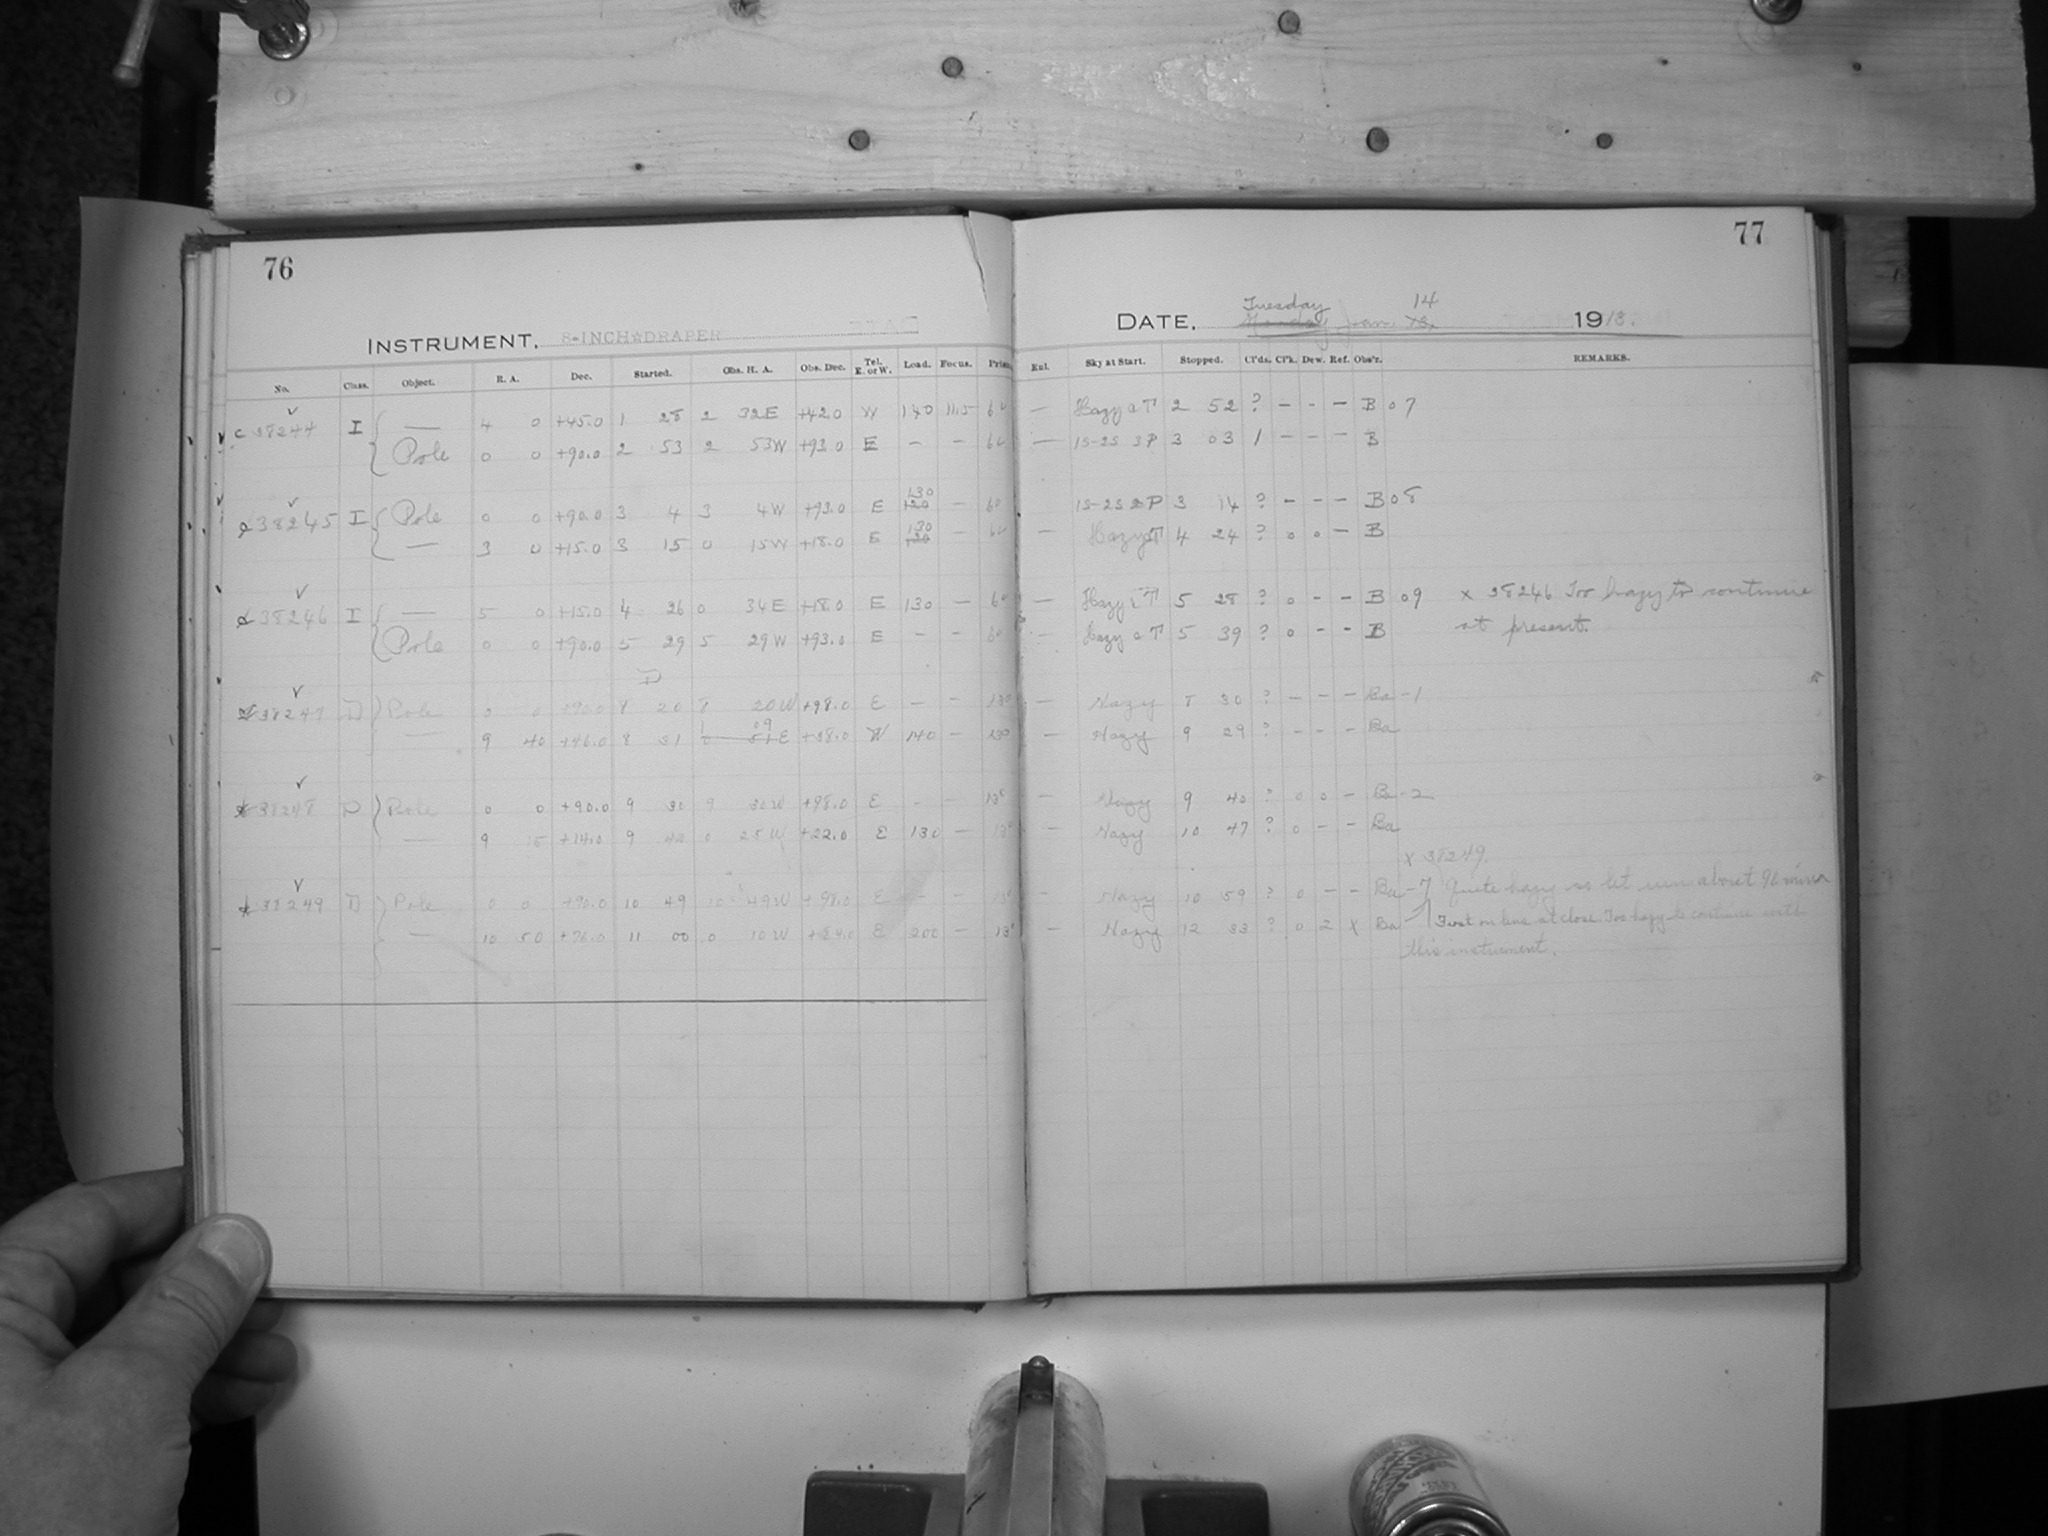 76
77
INSTRUMENT, 8-INCH DRAPER
DATE, Tuesday 14
Monday Jan 13, 1913.
No. Class. Object. R. A. Dec. Started. Obs. H. A. Obs. Dec. Tel. E. or W. Load. Focus. Prism Exl. Sky at Start. Stopped. Cl'ds. Cl'k. Dew. Ref. Obs'r. REMARKS.
c 38244 I — 4 0 +45.0 1 28 2 32E +42.0 W 140 11.5 60 — Hazy 2 52 ? – – – B 07
Pole 0 0 +90.0 2 53 2 53W +93.0 E – – 60 — 1S-2S 3P 3 03 1 – – – B
38245 I Pole 0 0 +90.0 3 4 3 4W +93.0 E 130 – 60 1S-2S 2P 3 14 ? – – – B 08
— 3 0 +15.0 3 15 0 15W +18.0 E 130 – 60 — Hazy 4 24 ? 0 0 – B
38246 I — 5 0 +15.0 4 26 0 34E +18.0 E 130 – 60 — Hazy 5 28 ? 0 – – B 09 x 38246 Too hazy to continue
Pole 0 0 +90.0 5 29 5 29W +93.0 E – – 60 — Hazy 5 39 ? 0 – – B at present.
D
38247 D Pole 0 0 +90.0 8 20 8 20W +98.0 E – – 13° — Hazy 8 30 ? – – – Ba -1
— 9 40 +46.0 8 31 1 09 E +38.0 W 140 – 13° — Hazy 9 29 ? – – – Ba
38248 D Pole 0 0 +90.0 9 30 9 30W +98.0 E – – 13° — Hazy 9 40 ? 0 0 – Ba -2
— 9 15 +14.0 9 42 0 25W +22.0 E 130 – 13° — Hazy 10 47 ? 0 – – Ba
x 38249.
38249 D Pole 0 0 +90.0 10 49 10 49W +98.0 E – – 13° — Hazy 10 59 ? 0 – – Ba -7 Quite hazy so let run about 90 mins
— 10 50 +76.0 11 00 0 10W +84.0 E 200 – 13° — Hazy 12 33 ? 0 2 x Ba Frost on lens at close. Too hazy to continue with
this instrument.